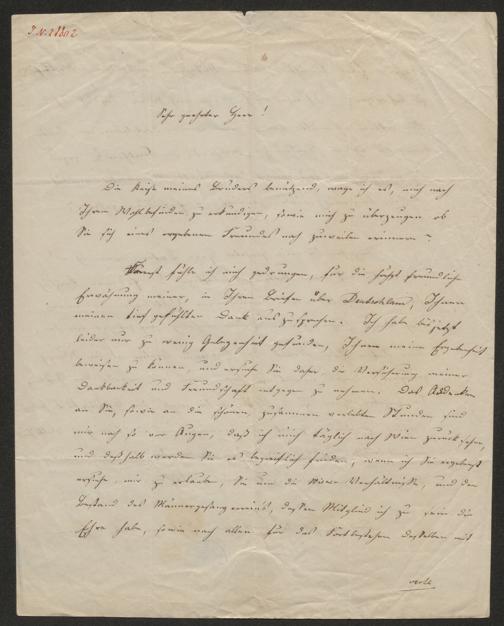 Sehr geehrter Herr!
Die Reise meines Bruders benützend, wage ich es, mich nach
Ihrem Wohlbefinden zu erkundigen, sowie mich zu überzeugen ob
Sie sich eines ergebenen Freundes noch zuweilen erinnern –
fühle ich mich gedrungen, für die höchst freundliche
Erwähnung meiner, in Ihren Briefen über Deutschland, Ihnen
meinen tief gefühlten Dank auszusprechen. Ich habe bis jetzt
leider nur zu wenig Gelegenheit gefunden, Ihnen meine Ergebenheit
beweisen zu können, und ersuche Sie daher die Versicherung meiner
Dankbarkeit und Freundschaft entgegen zu nehmen. Das Andenken
an Sie, sowie an die schönen, zusammen verlebten Stunden sind
mir noch so vor Augen, daß ich mich täglich nach Wien zurück sehne,
und deßhalb werden Sie es begreiflich finden, wenn ich Sie ergebenst
ersuche mir zu erlauben, Sie um die Wiener Verhältniße, und den
Bestand des Männergesangvereins, dessen Mitglied ich zu sein die
Ehre habe, sowie nach allen für das Fortbestehen desselben mit
verte